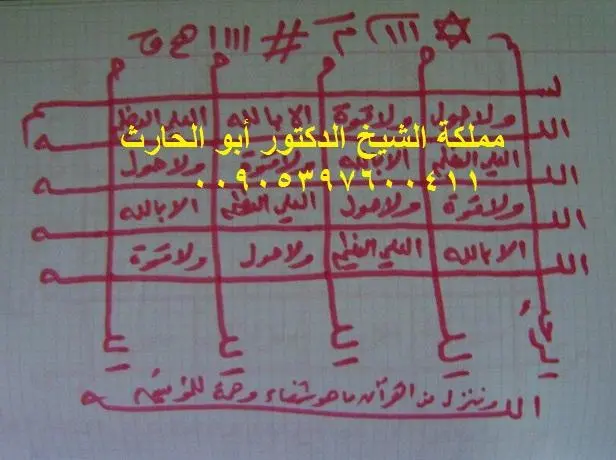 ااا م # اااا ه
ولا حول ولا قوة الا بالله العلي العظيم
مملكة الشيخ الدكتور أبو الحارث
العلي العظيم الا بالله ولا قوة ولا حول
٠٠٩٠٥٣٩٧٦٠٠٤١١
ولا قوة ولا حول العلي العظيم الا بالله
الا بالله العلي العظيم ولا حول ولا قوة
وننزل من القرآن ما هو شفاء ورحمة للمؤمنين